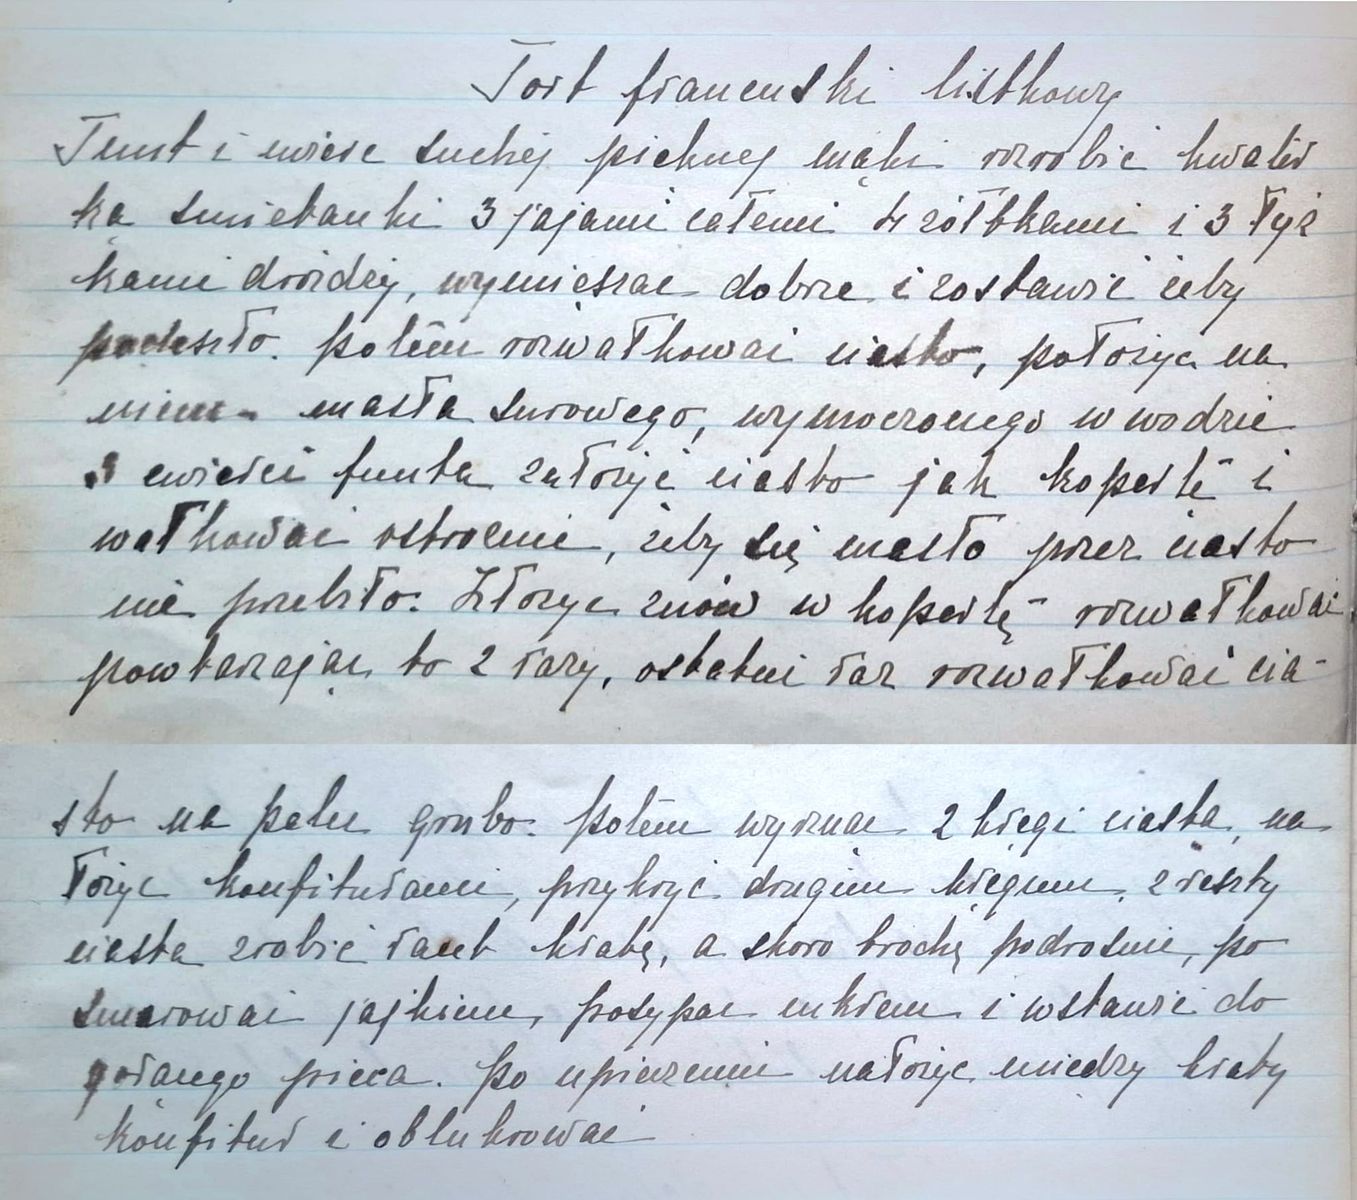 Tort francuski listkowy
Funt i ćwierć suchej pięknej mąki rozrobić kwatér
ką śmietanki 3 jajami całemi 4 żółtkami i 3 łyż
kami drożdży, wymieszać dobrze i zostawić żeby
podeszło. potém rozwałkować ciasto, położyć na
niem masła surowego, wymoczonego w wodzie
3 ćwierci funta założyć ciasto jak kopertę i
wałkować ostrożnie, żeby się masło przez ciasto
nie przebiło. Złożyć znów w kopertę rozwałkować
powtarzając to 2 razy, ostatni raz rozwałkować cia-
sto na palec grubo. potém wyrznąć 2 kręgi ciasta, na
łożyć konfiturami, przykryć drugim kręgiem, z reszty
ciasta zrobić rant kratę, a skoro trochę podrośnie, po
smarować jajkiem, posypać cukrem i wstawić do
gorącego pieca. Po upieczeniu nałożyć między kraty
konfitur i oblukrować